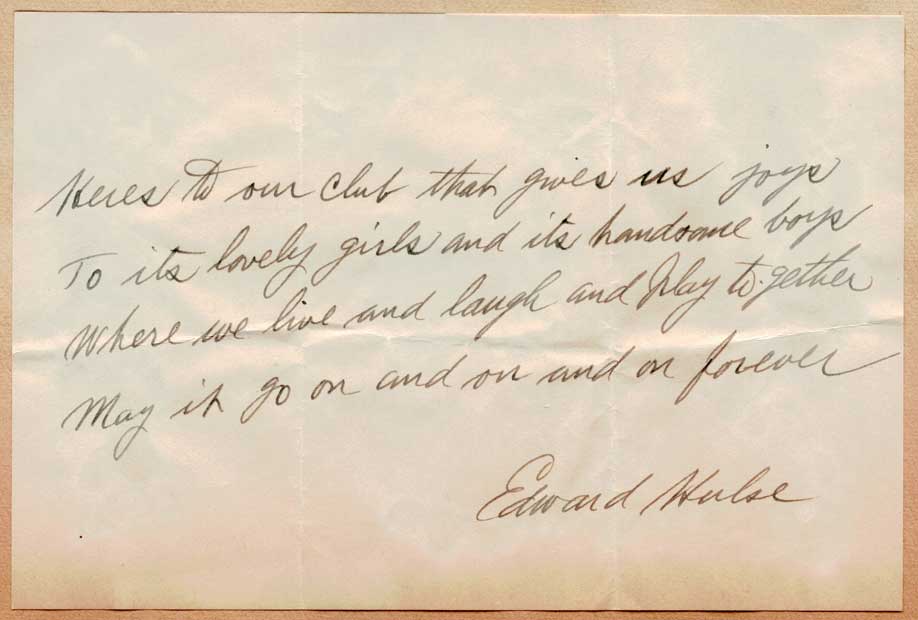 Heres to our club that gives us joys
To its lovely girls and its handsome boys
Where we live and laugh and play to-gether
May it go on and on and on forever
Edward Hulse